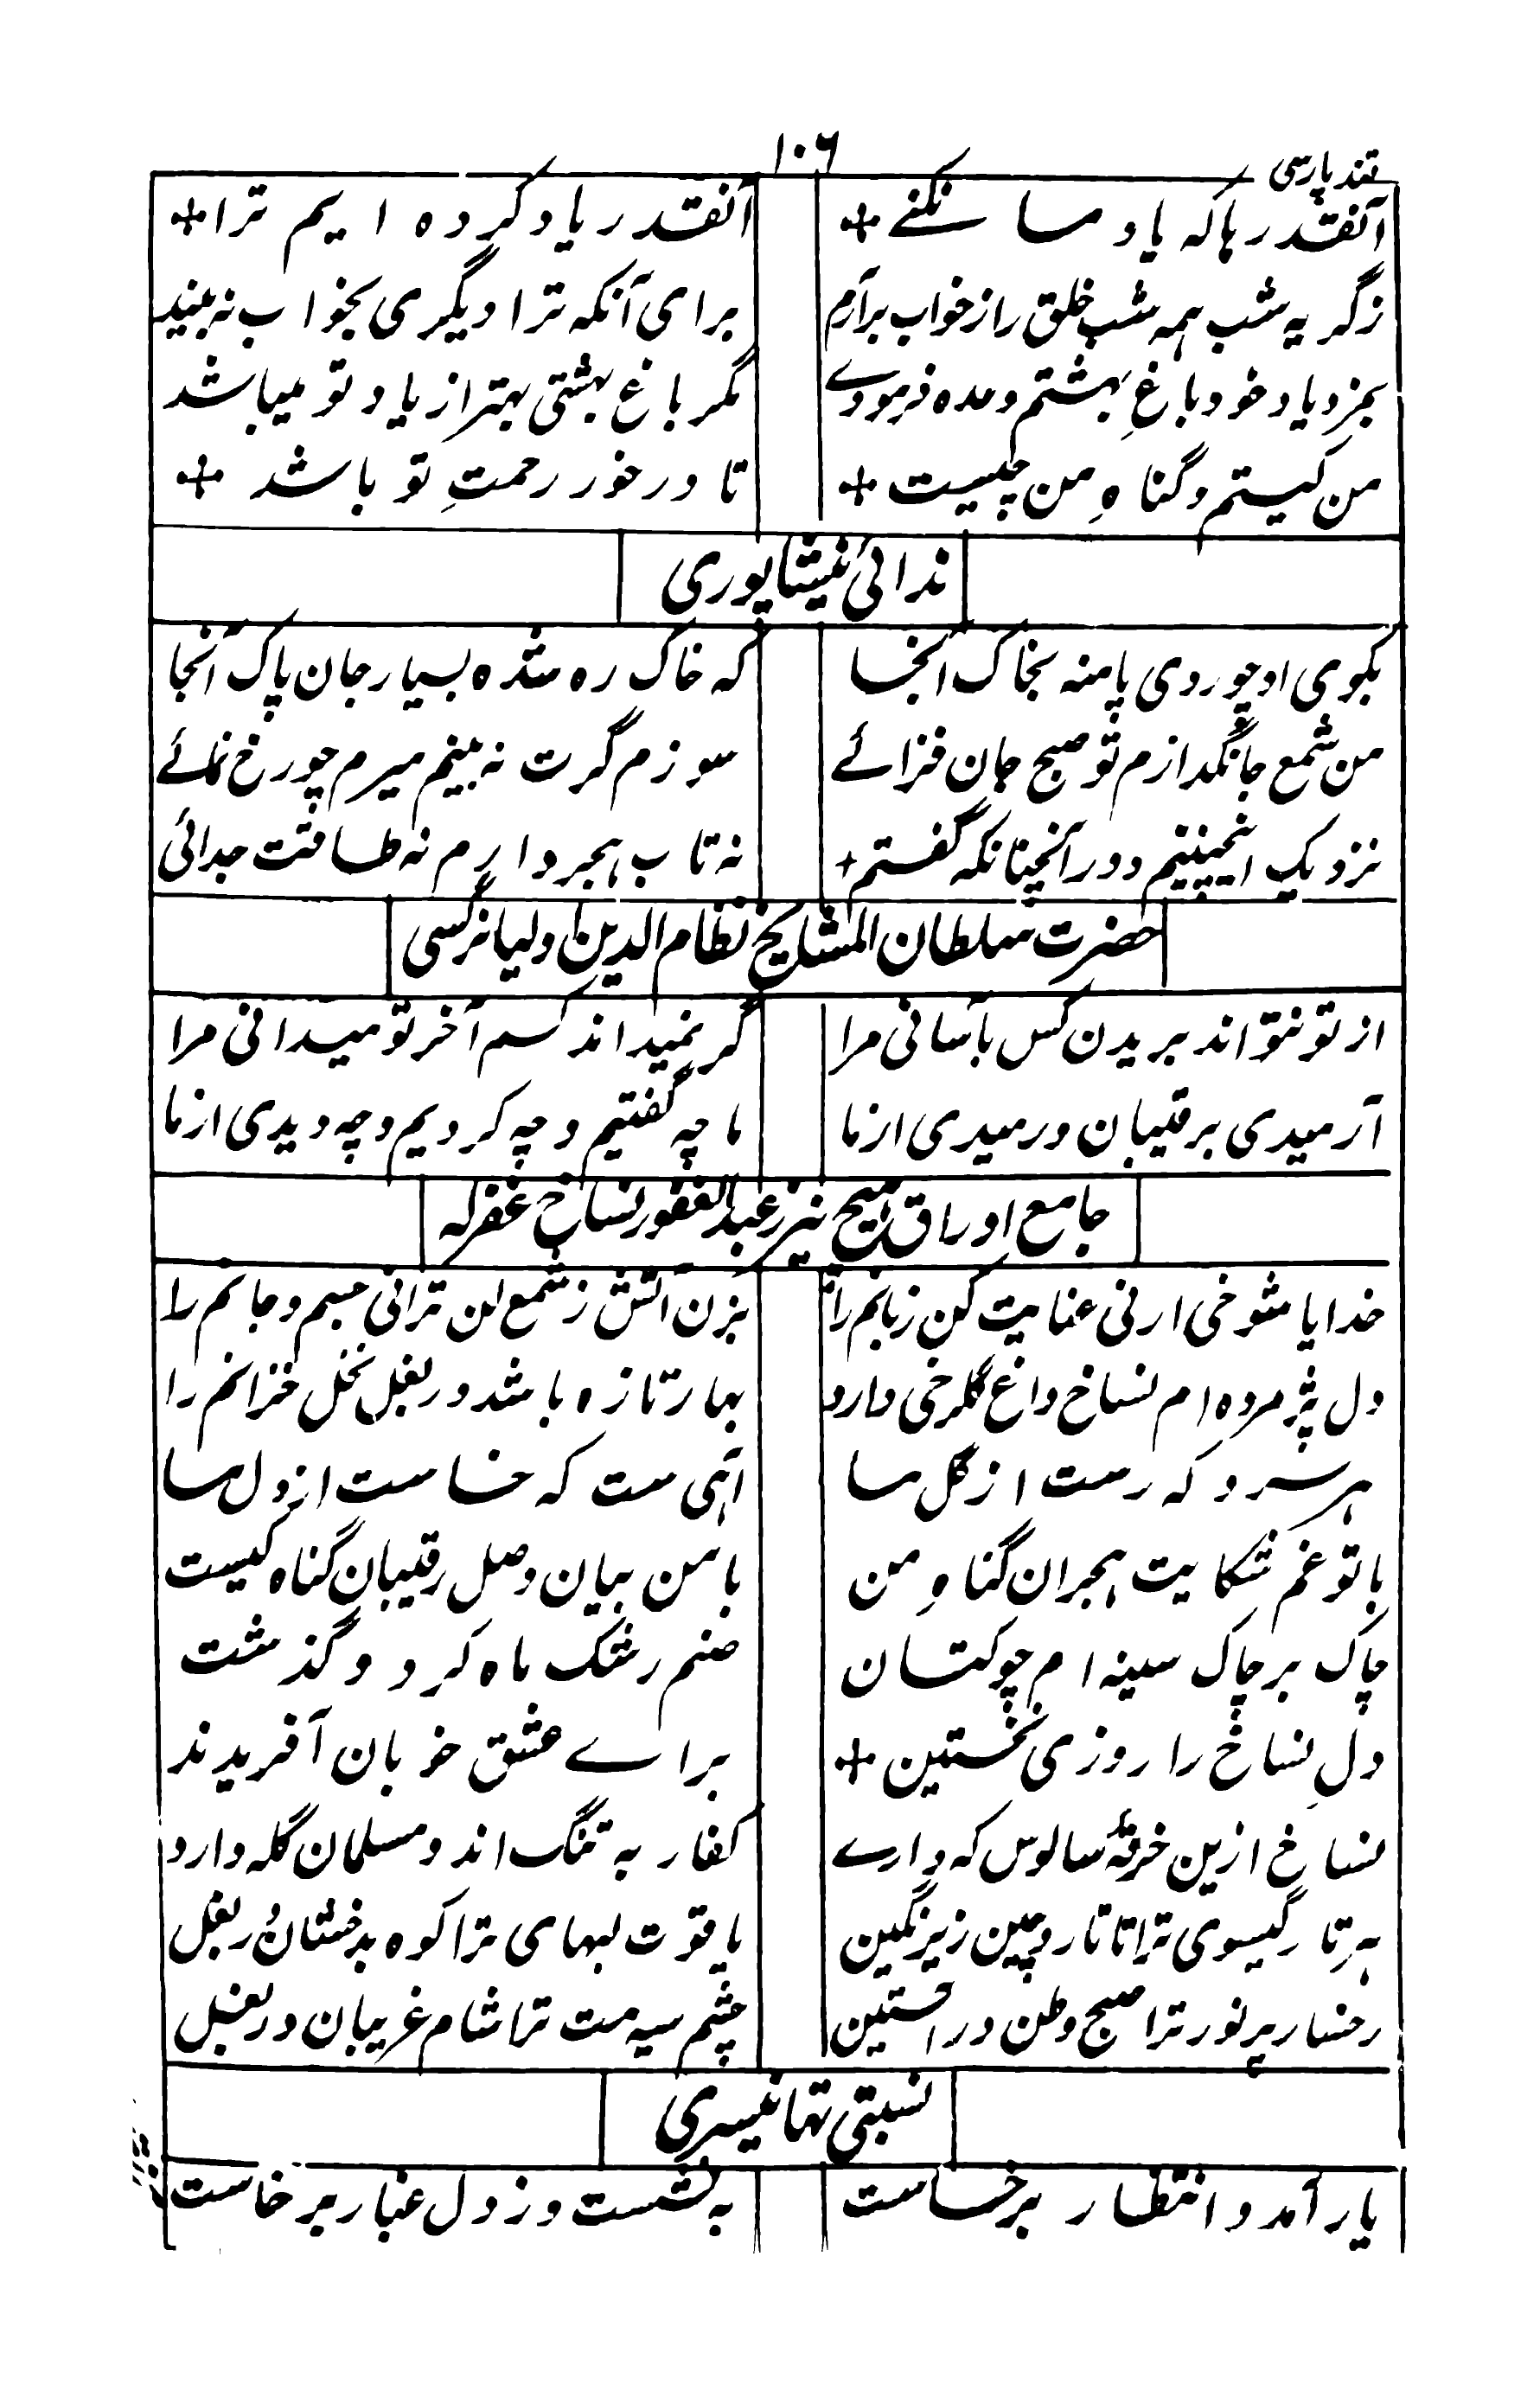 ۱۰۶
قند پارسی
آنقدرها که یاد ما نکنے + آنقدر یاد کرده ایم ترا +
ز گریه شب همه شب خلق را ز خواب برآرم برای آنکه ترا دیگری بخواب نه بیند
بجز یاد خود باغِ بهشتم وعده فرمودے مگر باغ بهشتی بهتر از یاد تو میباشد
من کیستم و گناهِ من چیست + تا در خور رحمتِ تو باشد +
ندائی نیشاپوری
بکوی او چو روی پا منه بخاک آنجا که خاک ره شده بسیار جان پاک آنجا
من شمع جانگدازم تو صبح جان فزائے سوزم گرت نه بینم میرم چو رخ نمائے
نزدیک اینچنینم دور آنچنانکه گفتم + نه تاب هجر دارم نه طاقت جدائی
حضرت سلطان المشایخ نظام الدین اولیا نرگسی
از تو نتواند بریدن کس بآسانی مرا گر نمیداند کسم آخر تو میدانی مرا
آرمیدی برقیبان و رمیدی از ما ما چه گفتیم و چه کردیم و چه دیدی از ما
جامع اوراق هیچ نیرز عبدالغفور نساخ غفرله
خدایا شوخی ارنی عنایت کن زبانم را بزن آتش ز شمع لن ترانی جسم و جانم را
دل پژمرده ام نساخ داغ گلرخی دارد بهار تازه باشد در بغل نخل خزانم را
هر سرو که رست از گل ما آهی ست که خاست از دل ما
با تو غم شکایت هجران گناهِ من با من بیان وصل رقیبان گناه کیست
چاک بر چاک سینه ام چو کتان صنم رشک ماه کرد و گذشت
دلِ نساخ را روزی نخستین + براے عشق خوبان آفریدند
نساخ ازین خرقهٔ سالوس که دارے کفار به تنگ اند و مسلمان گله دارد
هر تار گیسوی ترا تاتار و چین زیر نگین یاقوت لبهای ترا کوه بدخشان در بغل
رخسار پر نور ترا صبح وطن در آستین چشم سیه مست ترا شام غریبان در بغل
نسبتی تهانیسری
یار آمد و انتظار برخاست به نشست و ز دل غبار برخاست